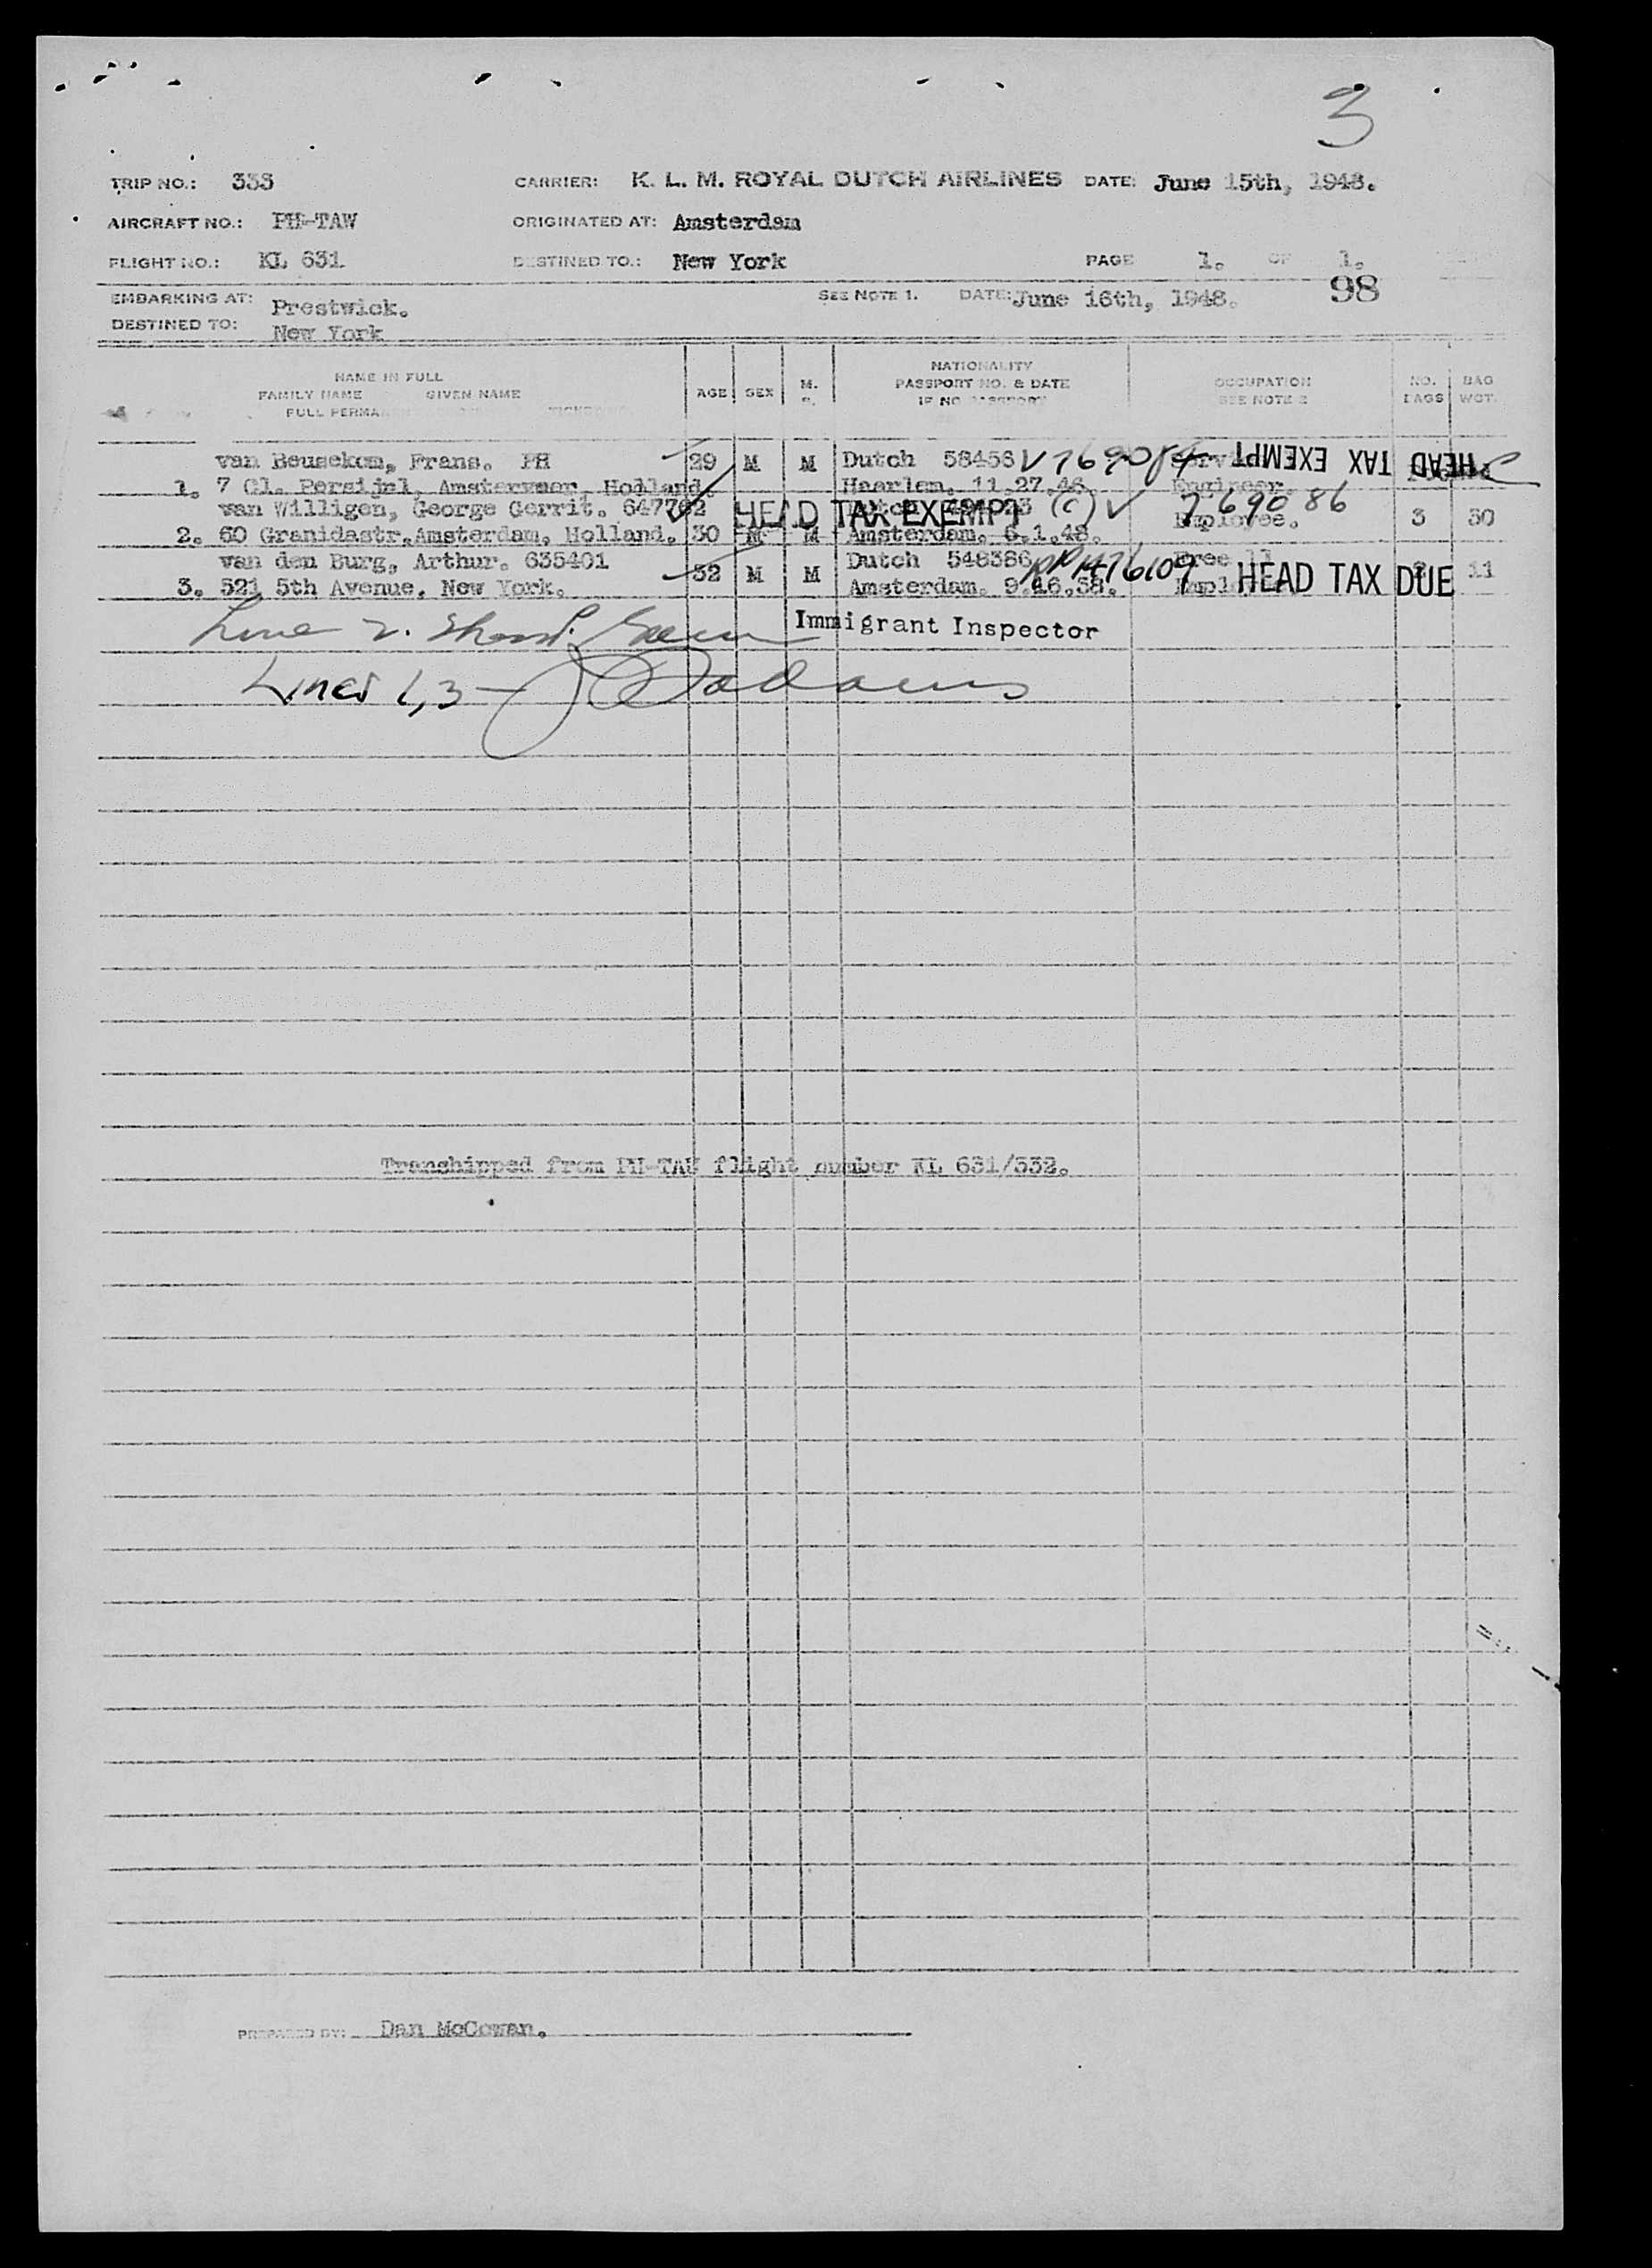 3
TRIP NO.: 333 CARRIER: K. L. M. ROYAL DUTCH AIRLINES DATE: June 15th, 1948.
AIRCRAFT NO.: PH-TAW ORIGINATED AT: Amsterdam
FLIGHT NO.: KL 631 DESTINED TO.: New York PAGE 1. OF 1.
98
EMBARKING AT: Prestwick. SEE NOTE 1. DATE: June 16th, 1948.
DESTINED TO: New York
NAME IN FULL
FAMILY NAME GIVEN NAME
AGE SEX M. NATIONALITY
PASSPORT NO. & DATE
OCCUPATION
SEE NOTE 2
NO. BAGS BAG WGT.
van Beusekom, Frans. PH 29 M M Dutch 58458 V769084 HEAD TAX EXEMPT
1. 7 Cl. Persijnl, Amsterveer, Holland. Haarlem. 11.27.46. Engineer.
van Willigen, George Gerrit. 647762 HEAD TAX EXEMPT (C) V 769086 Employee. 3 30
2. 60 Granidastr. Amsterdam, Holland. 30 M M Amsterdam. 6.1.48.
van den Burg, Arthur. 635401 32 M M Dutch 548386 RP1476109 Free 11
3. 521 5th Avenue, New York. Amsterdam. 9.16.38. HEAD TAX DUE
Line 2. Immigrant Inspector
Lines 1,3 –
Transhipped from PH-TAW flight number KL 631/332.
PREPARED BY: Dan McCowan.